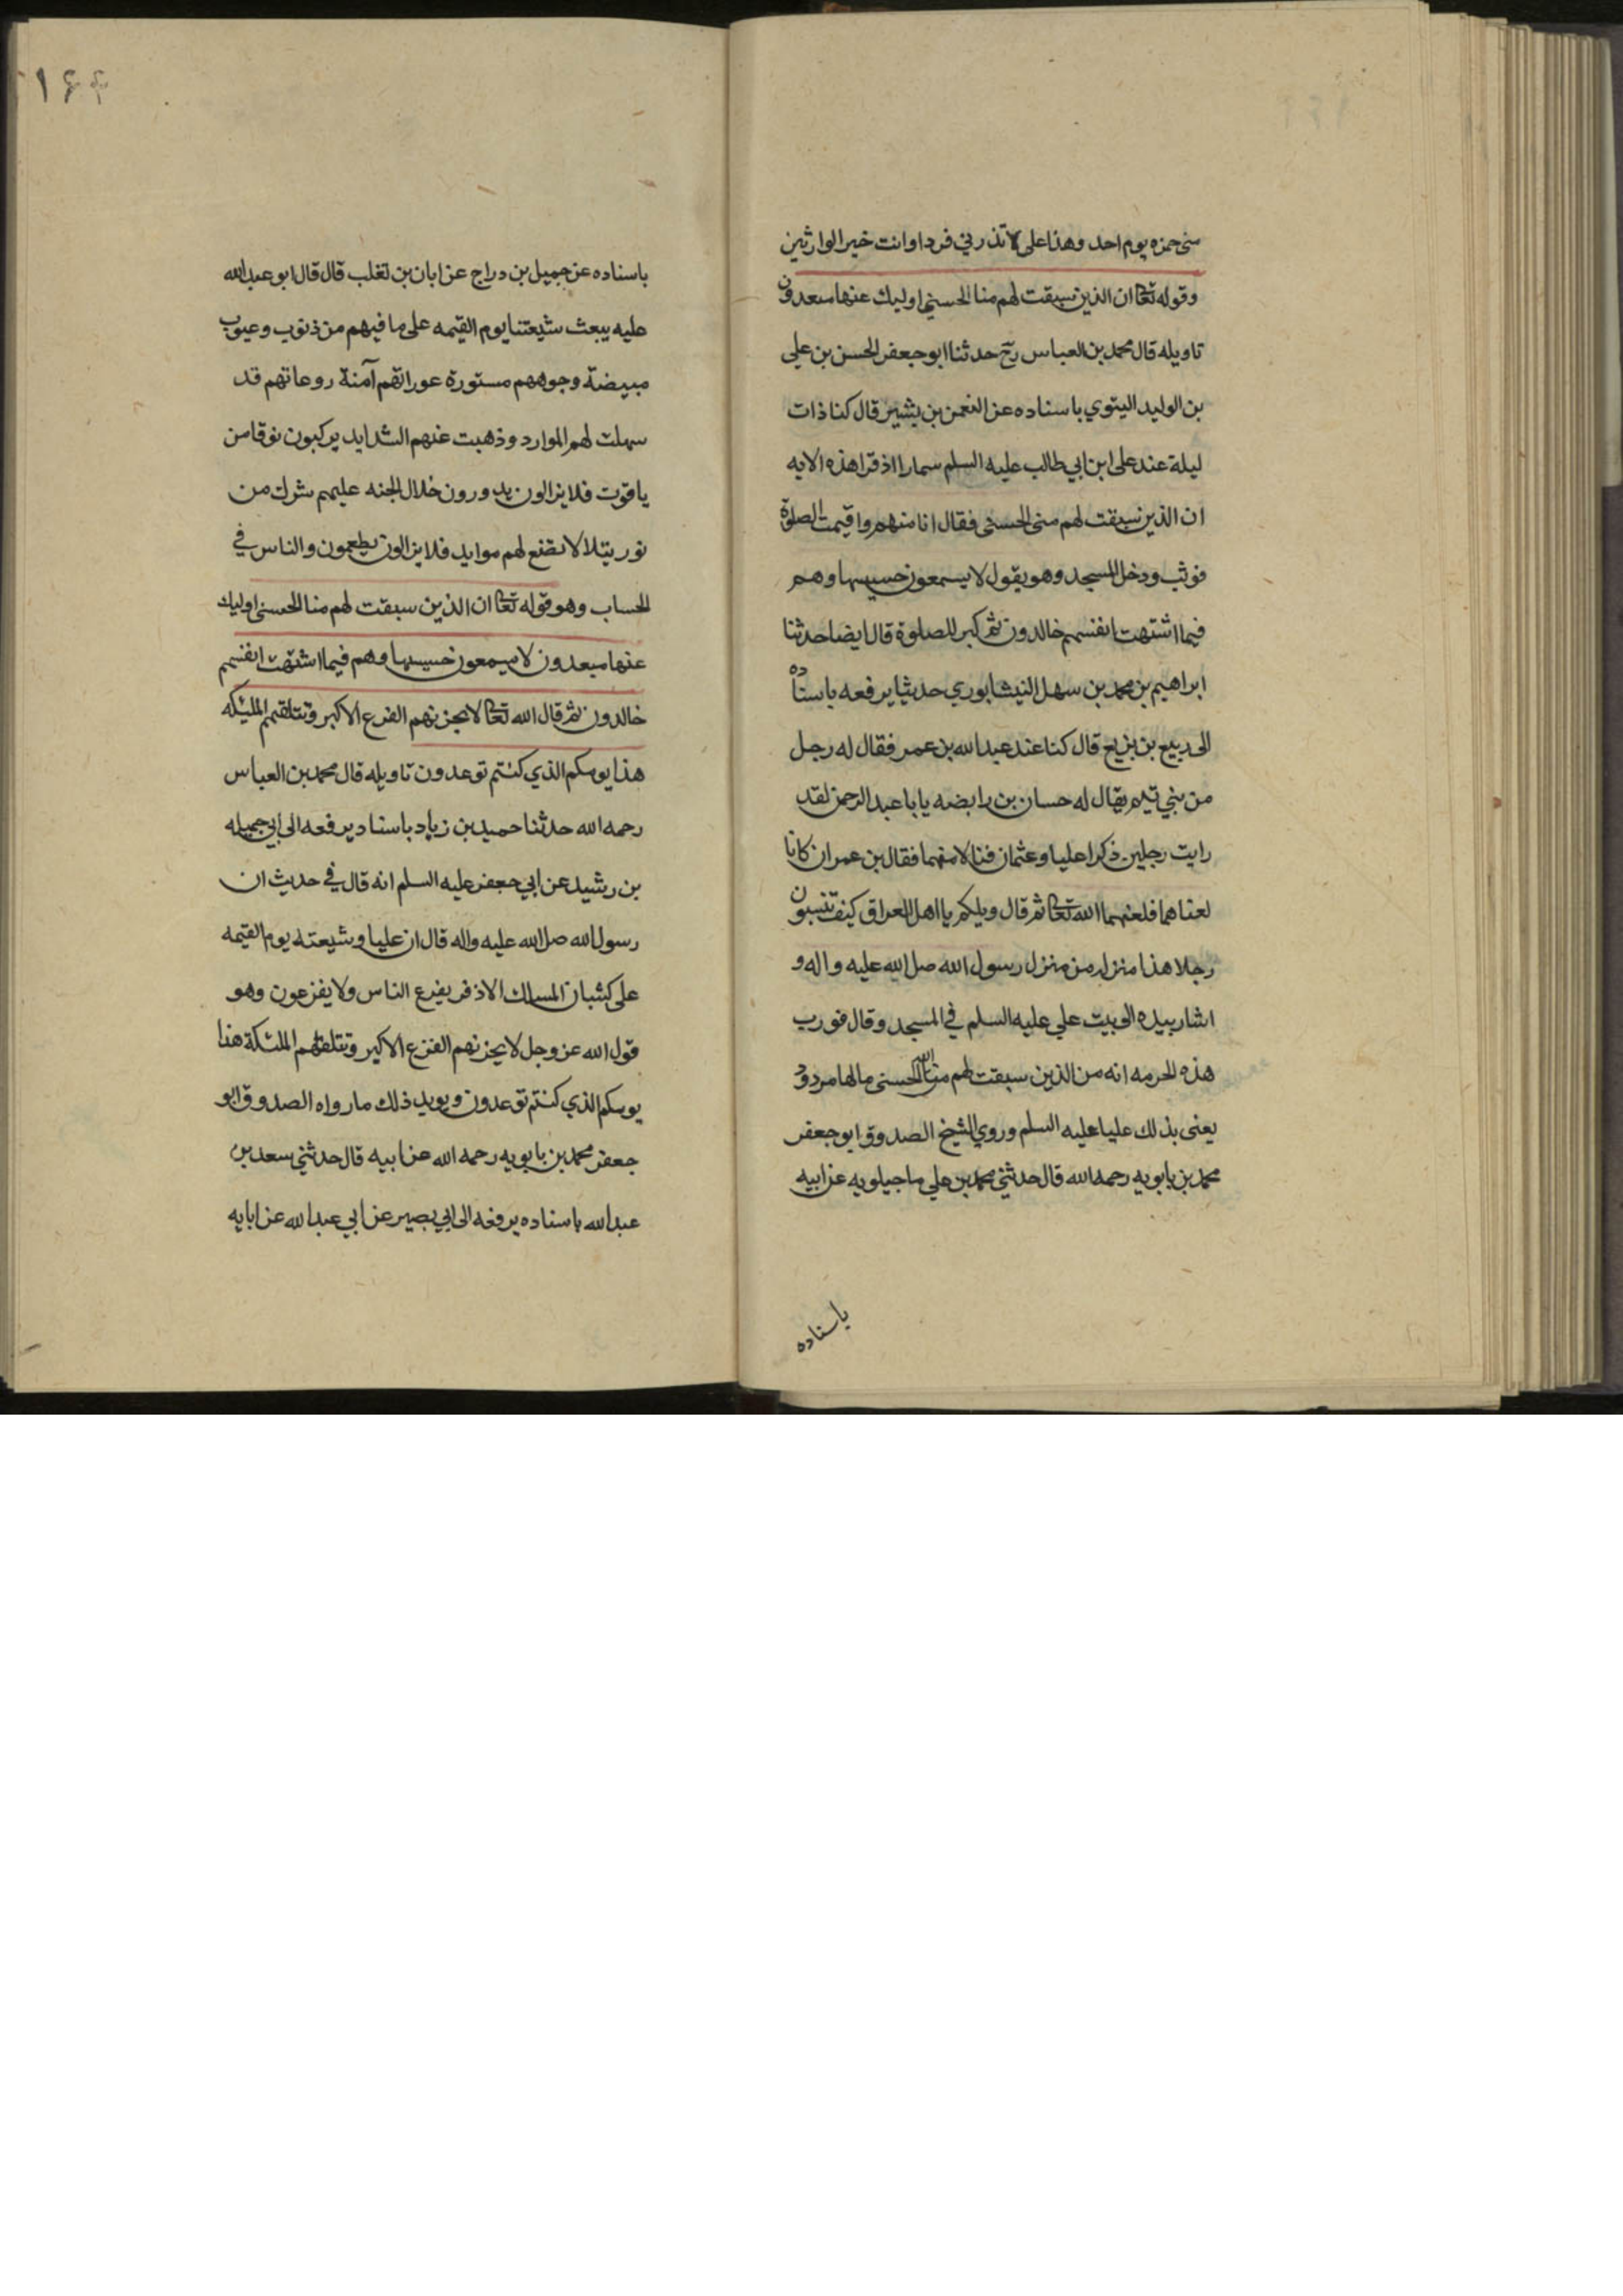 مني حمزه يوم احد وهذا علي لا تذرني فردا وانت خير الوارثين
وقوله تعا ان الذين سبقت لهم منا الحسنى اوليك عنها مبعدون
تاويله قال محمد بن العباس رح حدثنا ابو جعفر الحسن بن علي
بن الوليد باسناده عن النعمن بن بشير قال كنا ذات
ليلة عند علي ابن ابي طالب عليه السلم سمارا اذ قرا هذه الايه
ان الذين سبقت لهم منى الحسنى فقال انا منهم واقيمت الصلوة
فوثب ودخل المسجد وهو يقول لا يسمعون حسيسها وهم
فيما اشتهت انفسهم خالدون ثم كبر للصلوة قال ايضا حدثنا
ابراهيم بن محمد بن سهل النيشابوري حديثا يرفعه باسناده
الى ربيع بن بزيع قال كنا عند عبد الله بن عمر فقال له رجل
من بني تيم يقال له حسان بن رابضه يابا عبد الرحمن لقد
رايت رجلين ذكرا عليا وعثمان فنالا منهما فقال بن عمر ان كانا
لعناهما فلعنهما الله تعا ثم قال ويلكم يا اهل العراق كيف تسبون
رجلا هذا منزله من منزل رسول الله صلى الله عليه واله و
اشار بيده الى بيت علي عليه السلم في المسجد وقال فورب
هذه الحرمه انه من الذين سبقت لهم منا الحسنى مالها مردود
يعنى بذلك عليا عليه السلم وروي الشيخ الصدوق ابو جعفر
محمد بن بابويه رحمه الله قال حدثني محمد بن علي ماجيلويه عن ابيه
باسناده
باسناده عن جميل بن دراج عن ابان بن تغلب قال قال ابو عبد الله
عليه يبعث شيعتنا يوم القيمه على ما فيهم من ذنوب وعيوب
مبيضة وجوههم مستورة عوراتهم آمنة روعاتهم قد
سهلت لهم الموارد وذهبت عنهم الشدايد يركبون نوقا من
ياقوت فلا يزالون يدورون خلال الجنه عليهم شرك من
نور يتلالا توضع لهم موايد فلا يزالون يطعمون والناس في
الحساب وهو قوله تعا ان الذين سبقت لهم منا الحسنى اوليك
عنها مبعدون لا يسمعون حسيسها وهم فيما اشتهت انفسهم
خالدون ثم قال الله تعا لا يحزنهم الفزع الاكبر وتتلقيهم المليكه
هذا يومكم الذي كنتم توعدون تاويله قال محمد بن العباس
رحمه الله حدثنا حميد بن زياد باسناد يرفعه الى ابي جميله
بن رشيد عن ابي جعفر عليه السلم انه قال في حديث ان
رسول الله صلى الله عليه واله قال ان عليا وشيعته يوم القيمه
على كثبان المسك الاذفر يفزع الناس ولا يفزعون وهو
قول الله عز وجل لا يحزنهم الفزع الاكبر وتتلقهم الملئكة هذا
يومكم الذي كنتم توعدون ويويد ذلك ما رواه الصدوق ابو
جعفر محمد بن بابويه رحمه الله عن ابيه قال حدثني سعد بن
عبد الله باسناده يرفعه الى ابي بصير عن ابي عبد الله عن ابايه